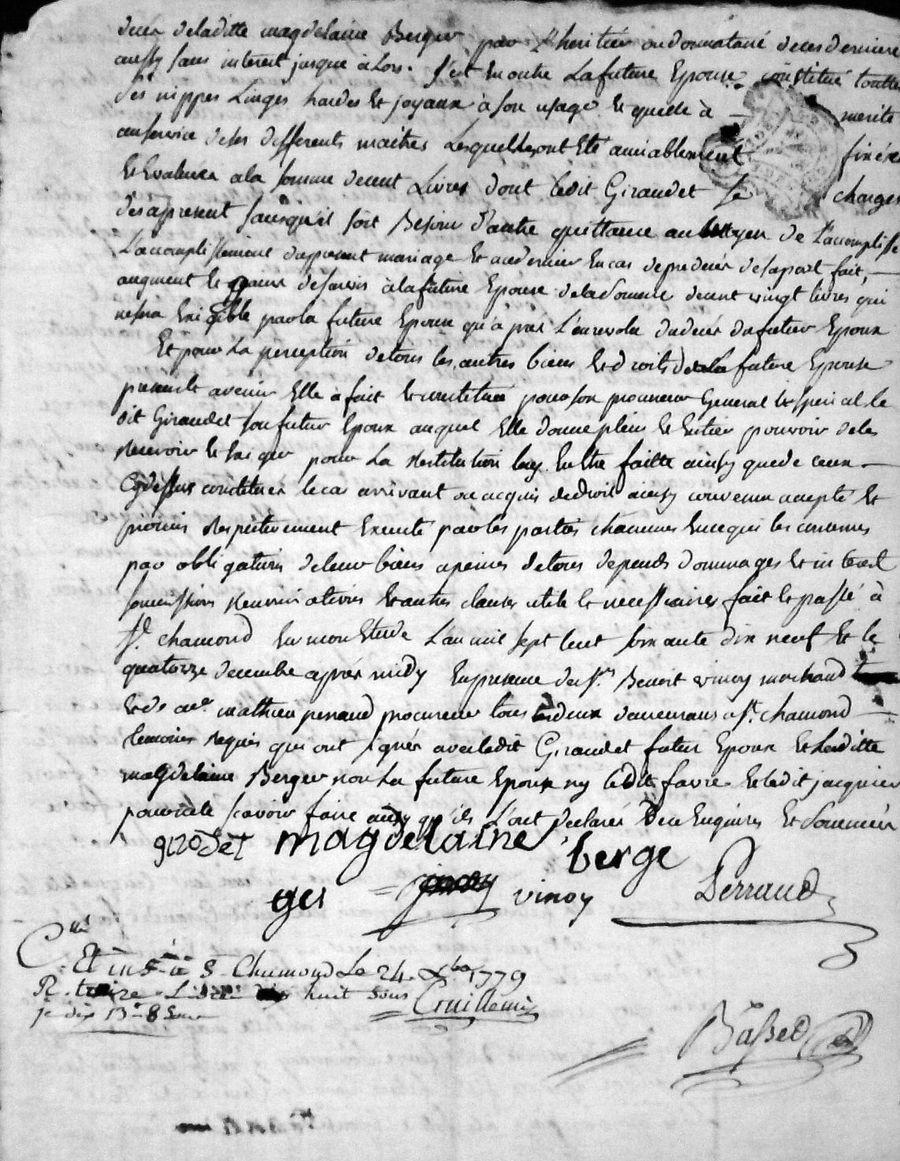 deces de laditte magdelaine Berger par l'heritier ou donnataire de ces derniere
aussy sans interet jusque alors. S'est en outre La future Epouse constitué toutte
ses nippes Linges hardes et joyaux à son usage et quelle à merité
au service de ses differents maitres Lesquelles ont Eté amiablement
et Evaluées a la somme de cent Livres dont ledit Giraudet se charge
des apresent sans qu'il soit Besoin d'autre quittance au moyen de l'accomplisse
L'accomplissement du present mariage et au dernier en cas de predecés de sa part fait,
augment et gain de survis à la future Epouse de la Somme de cent vingt livres qui
nesera Exigible par la future Epouse qu'a pres du deces du futur Epoux
Et pour La perception de tous les autres biens et droits de la future Epouse
present et avenir Elle à fait et constitué pour son procureur General et special le
dit Giraudet son futur Epoux auquel Elle donne plein et Entier pouvoir de les
recevoir et Exiger pour La restitution luy En Etre faitte ainsy que de ceux
cydessus constitués le cas arrivant ou acquis de droit ainsy convenu accepté et
promis respectivement Executé par les parties chacunes En ce qui les concernes
par obligations de leur biens a peines de tous depends dommages et interest
soumissions renonciations et autres clauses utile et necessaires fait et passé à
St. chamond En mon Etude L'an mil sept cent soixante dix neuf et le
quatorze decembre après midy En presence de Sr. Benoit vinoy marchand
et de me. mathieu perraud procureur tous les deux demeurans a St. chamond
temoins requis qui ont signés avec ledit Giraudet futur Epoux et laditte
magdelaine Berger non La future Epouse ny ledit favre et ledit jacquier
pour ne le scavoir faire ainsy qu'ils L'ont declaré De ce Enquires et Sommés
girodet magdelaine berge
ger vinoy Perraud
Cllé
Et insé à St Chamond Le 24. Xbre 1779
R. treize Livres huit sous
Bassed